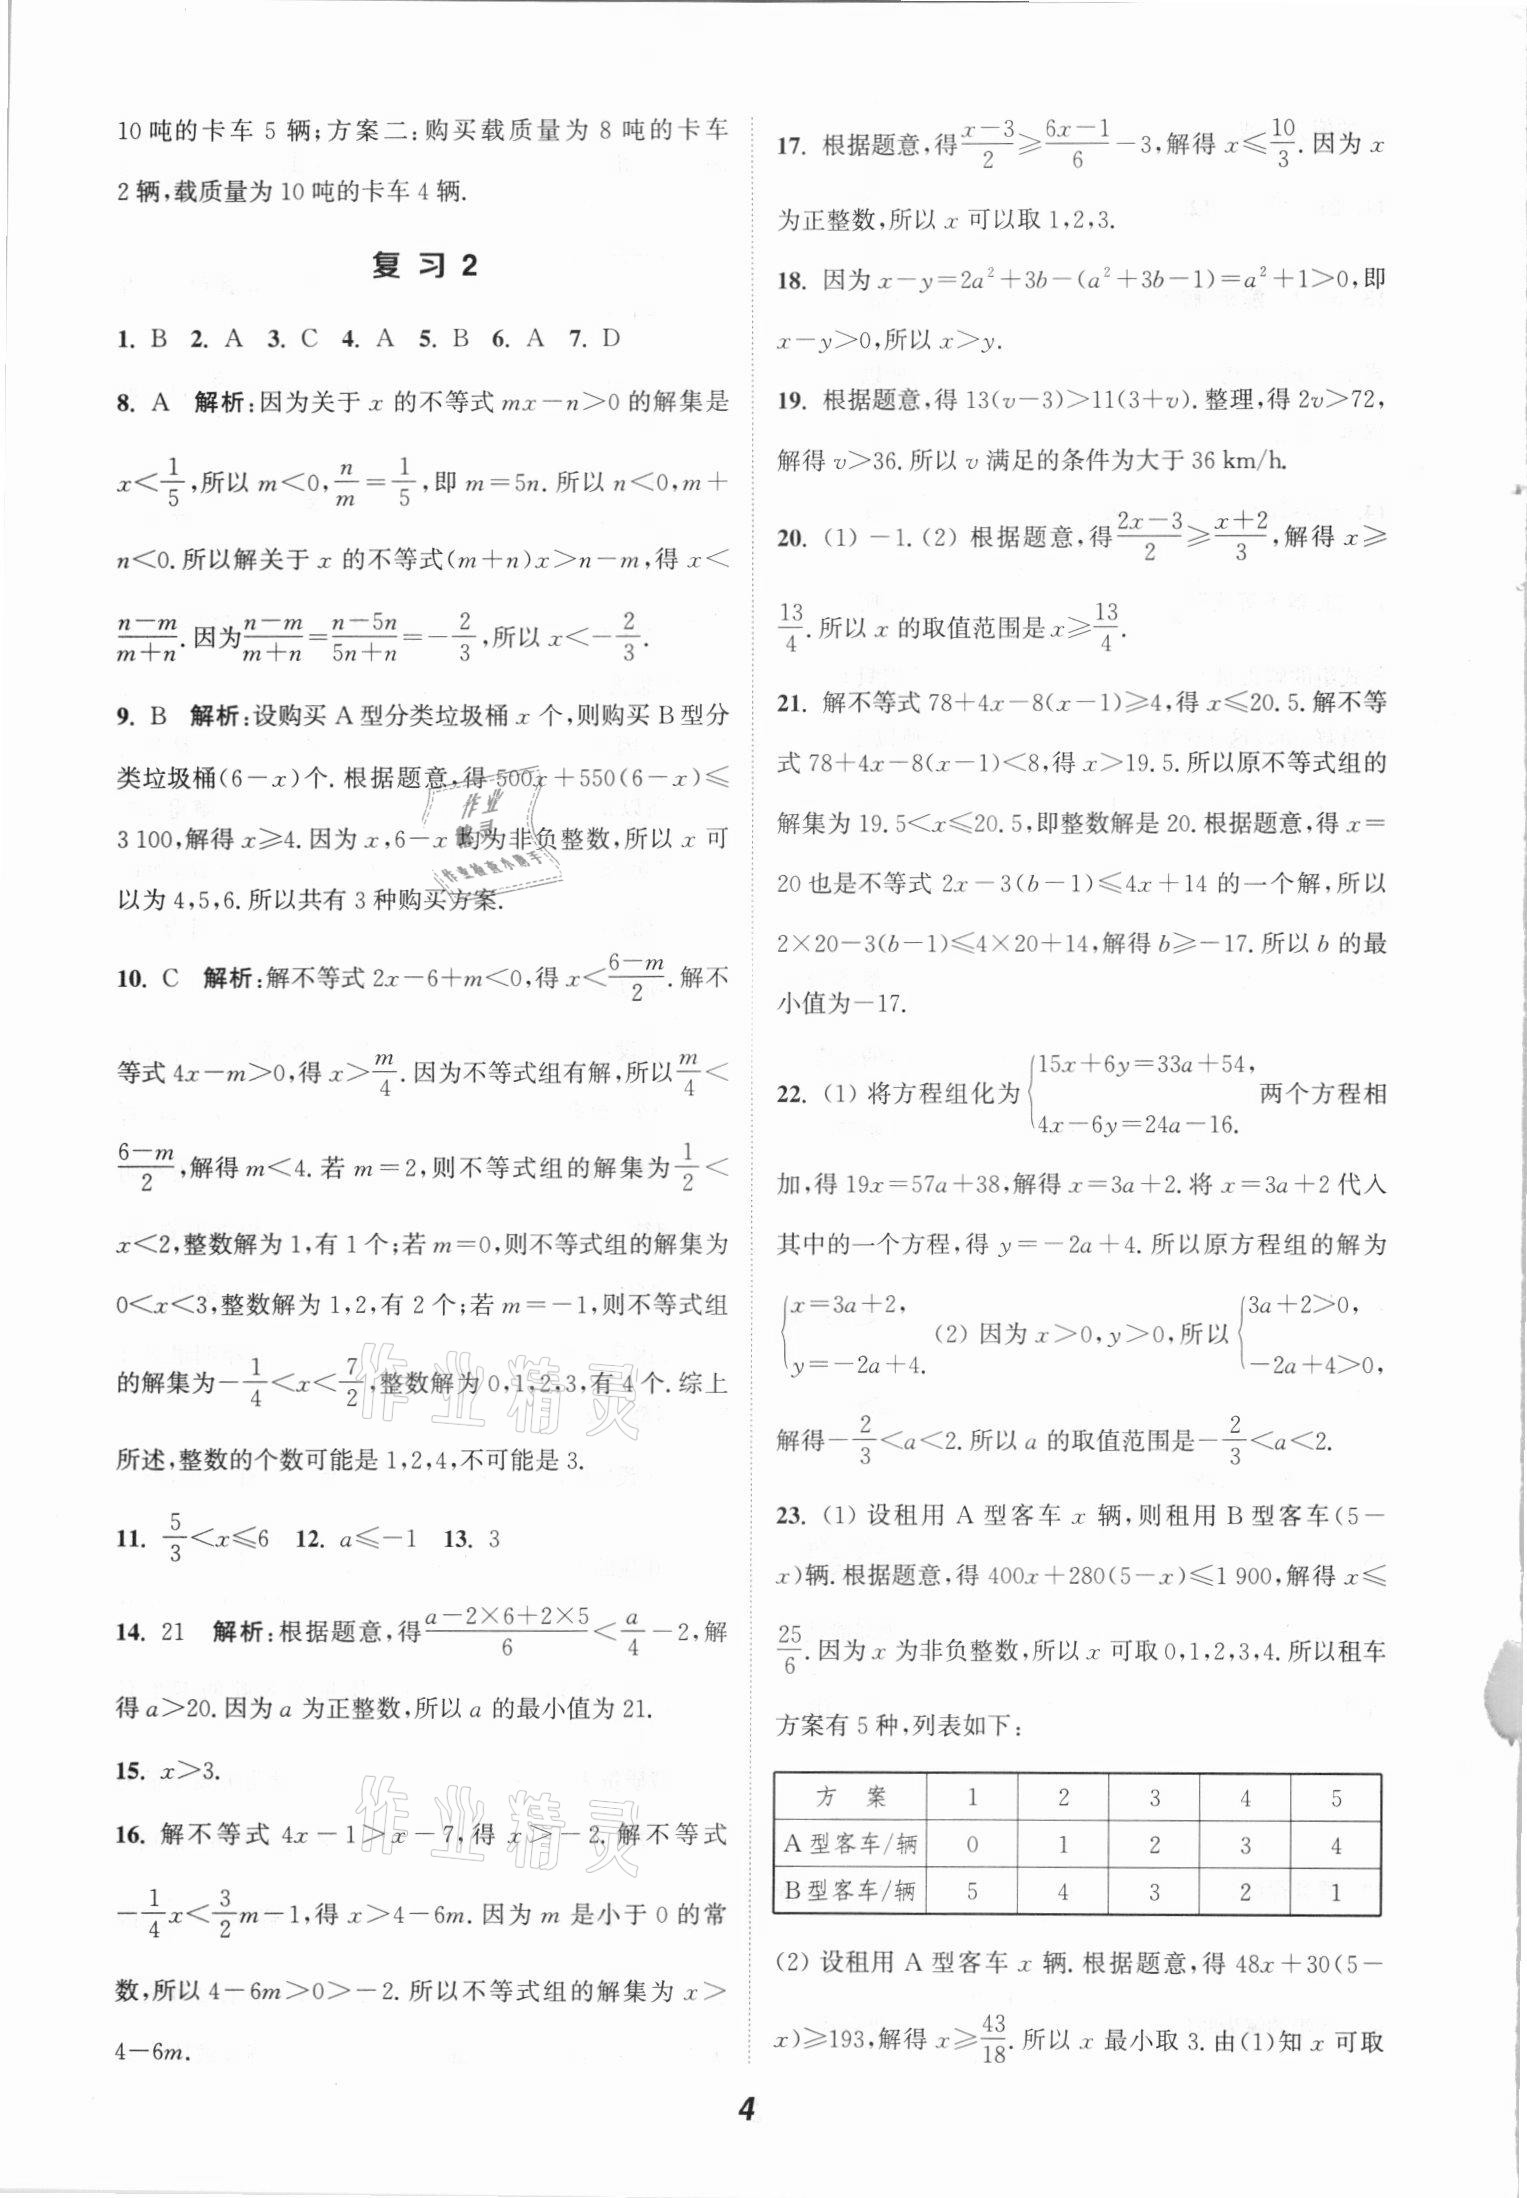 10 吨的卡车 5 辆;方案二:购买载质量为 8 吨的卡车
2 辆,载质量为 10 吨的卡车 4 辆.
复 习 2
1. B 2. A 3. C 4. A 5. B 6. A 7. D
8. A 解析:因为关于 x 的不等式 mx-n>0 的解集是
x<1/5,所以 m<0,n/m=1/5,即 m=5n. 所以 n<0,m+
n<0. 所以解关于 x 的不等式(m+n)x>n-m,得 x<
(n-m)/(m+n). 因为(n-m)/(m+n)=(n-5n)/(5n+n)=-2/3,所以 x<-2/3.
9. B 解析:设购买 A 型分类垃圾桶 x 个,则购买 B 型分
类垃圾桶(6-x)个. 根据题意,得 500x+550(6-x)≤
3 100,解得 x≥4. 因为 x,6-x 均为非负整数,所以 x 可
以为 4,5,6. 所以共有 3 种购买方案.
10. C 解析:解不等式 2x-6+m<0,得 x<(6-m)/2. 解不
等式 4x-m>0,得 x>m/4. 因为不等式组有解,所以m/4<
(6-m)/2,解得 m<4. 若 m=2,则不等式组的解集为1/2<
x<2,整数解为 1,有 1 个;若 m=0,则不等式组的解集为
0<x<3,整数解为 1,2,有 2 个;若 m=-1,则不等式组
的解集为-1/4<x<7/2,整数解为 0,1,2,3,有 4 个. 综上
所述,整数的个数可能是 1,2,4,不可能是 3.
11. 5/3<x≤6 12. a≤-1 13. 3
14. 21 解析:根据题意,得(a-2×6+2×5)/6<a/4-2,解
得 a>20. 因为 a 为正整数,所以 a 的最小值为 21.
15. x>3.
16. 解不等式 4x-1>x-7,得 x>-2. 解不等式
-1/4x<3/2m-1,得 x>4-6m. 因为 m 是小于 0 的常
数,所以 4-6m>0>-2. 所以不等式组的解集为 x>
4-6m.
17. 根据题意,得(x-3)/2≥(6x-1)/6-3,解得 x≤10/3. 因为 x
为正整数,所以 x 可以取 1,2,3.
18. 因为 x-y=2a²+3b-(a²+3b-1)=a²+1>0,即
x-y>0,所以 x>y.
19. 根据题意,得 13(v-3)>11(3+v). 整理,得 2v>72,
解得 v>36. 所以 v 满足的条件为大于 36 km/h.
20. (1) -1. (2) 根据题意,得(2x-3)/2≥(x+2)/3,解得 x≥
13/4. 所以 x 的取值范围是 x≥13/4.
21. 解不等式 78+4x-8(x-1)≥4,得 x≤20. 5. 解不等
式 78+4x-8(x-1)<8,得 x>19. 5. 所以原不等式组的
解集为 19. 5<x≤20. 5,即整数解是 20. 根据题意,得 x=
20 也是不等式 2x-3(b-1)≤4x+14 的一个解,所以
2×20-3(b-1)≤4×20+14,解得 b≥-17. 所以 b 的最
小值为-17.
22. (1) 将方程组化为{15x+6y=33a+54, 4x-6y=24a-16. 两个方程相
加,得 19x=57a+38,解得 x=3a+2. 将 x=3a+2 代入
其中的一个方程,得 y=-2a+4. 所以原方程组的解为
{x=3a+2, y=-2a+4. (2) 因为 x>0,y>0,所以{3a+2>0, -2a+4>0,
解得-2/3<a<2. 所以 a 的取值范围是-2/3<a<2.
23. (1) 设租用 A 型客车 x 辆,则租用 B 型客车(5-
x)辆. 根据题意,得 400x+280(5-x)≤1 900,解得 x≤
25/6. 因为 x 为非负整数,所以 x 可取 0,1,2,3,4. 所以租车
方案有 5 种,列表如下:
方 案 1 2 3 4 5
A 型客车/辆 0 1 2 3 4
B 型客车/辆 5 4 3 2 1
(2) 设租用 A 型客车 x 辆. 根据题意,得 48x+30(5-
x)≥193,解得 x≥43/18. 所以 x 最小取 3. 由(1)知 x 可取
4
作业精灵
作业检查小助手
作业精灵
作业精灵